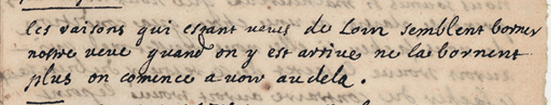 les raisons qui estant veües de Loin semblent borner
nostre veüe quand on y est arrivé ne la bornent
plus on comence a voir audela.